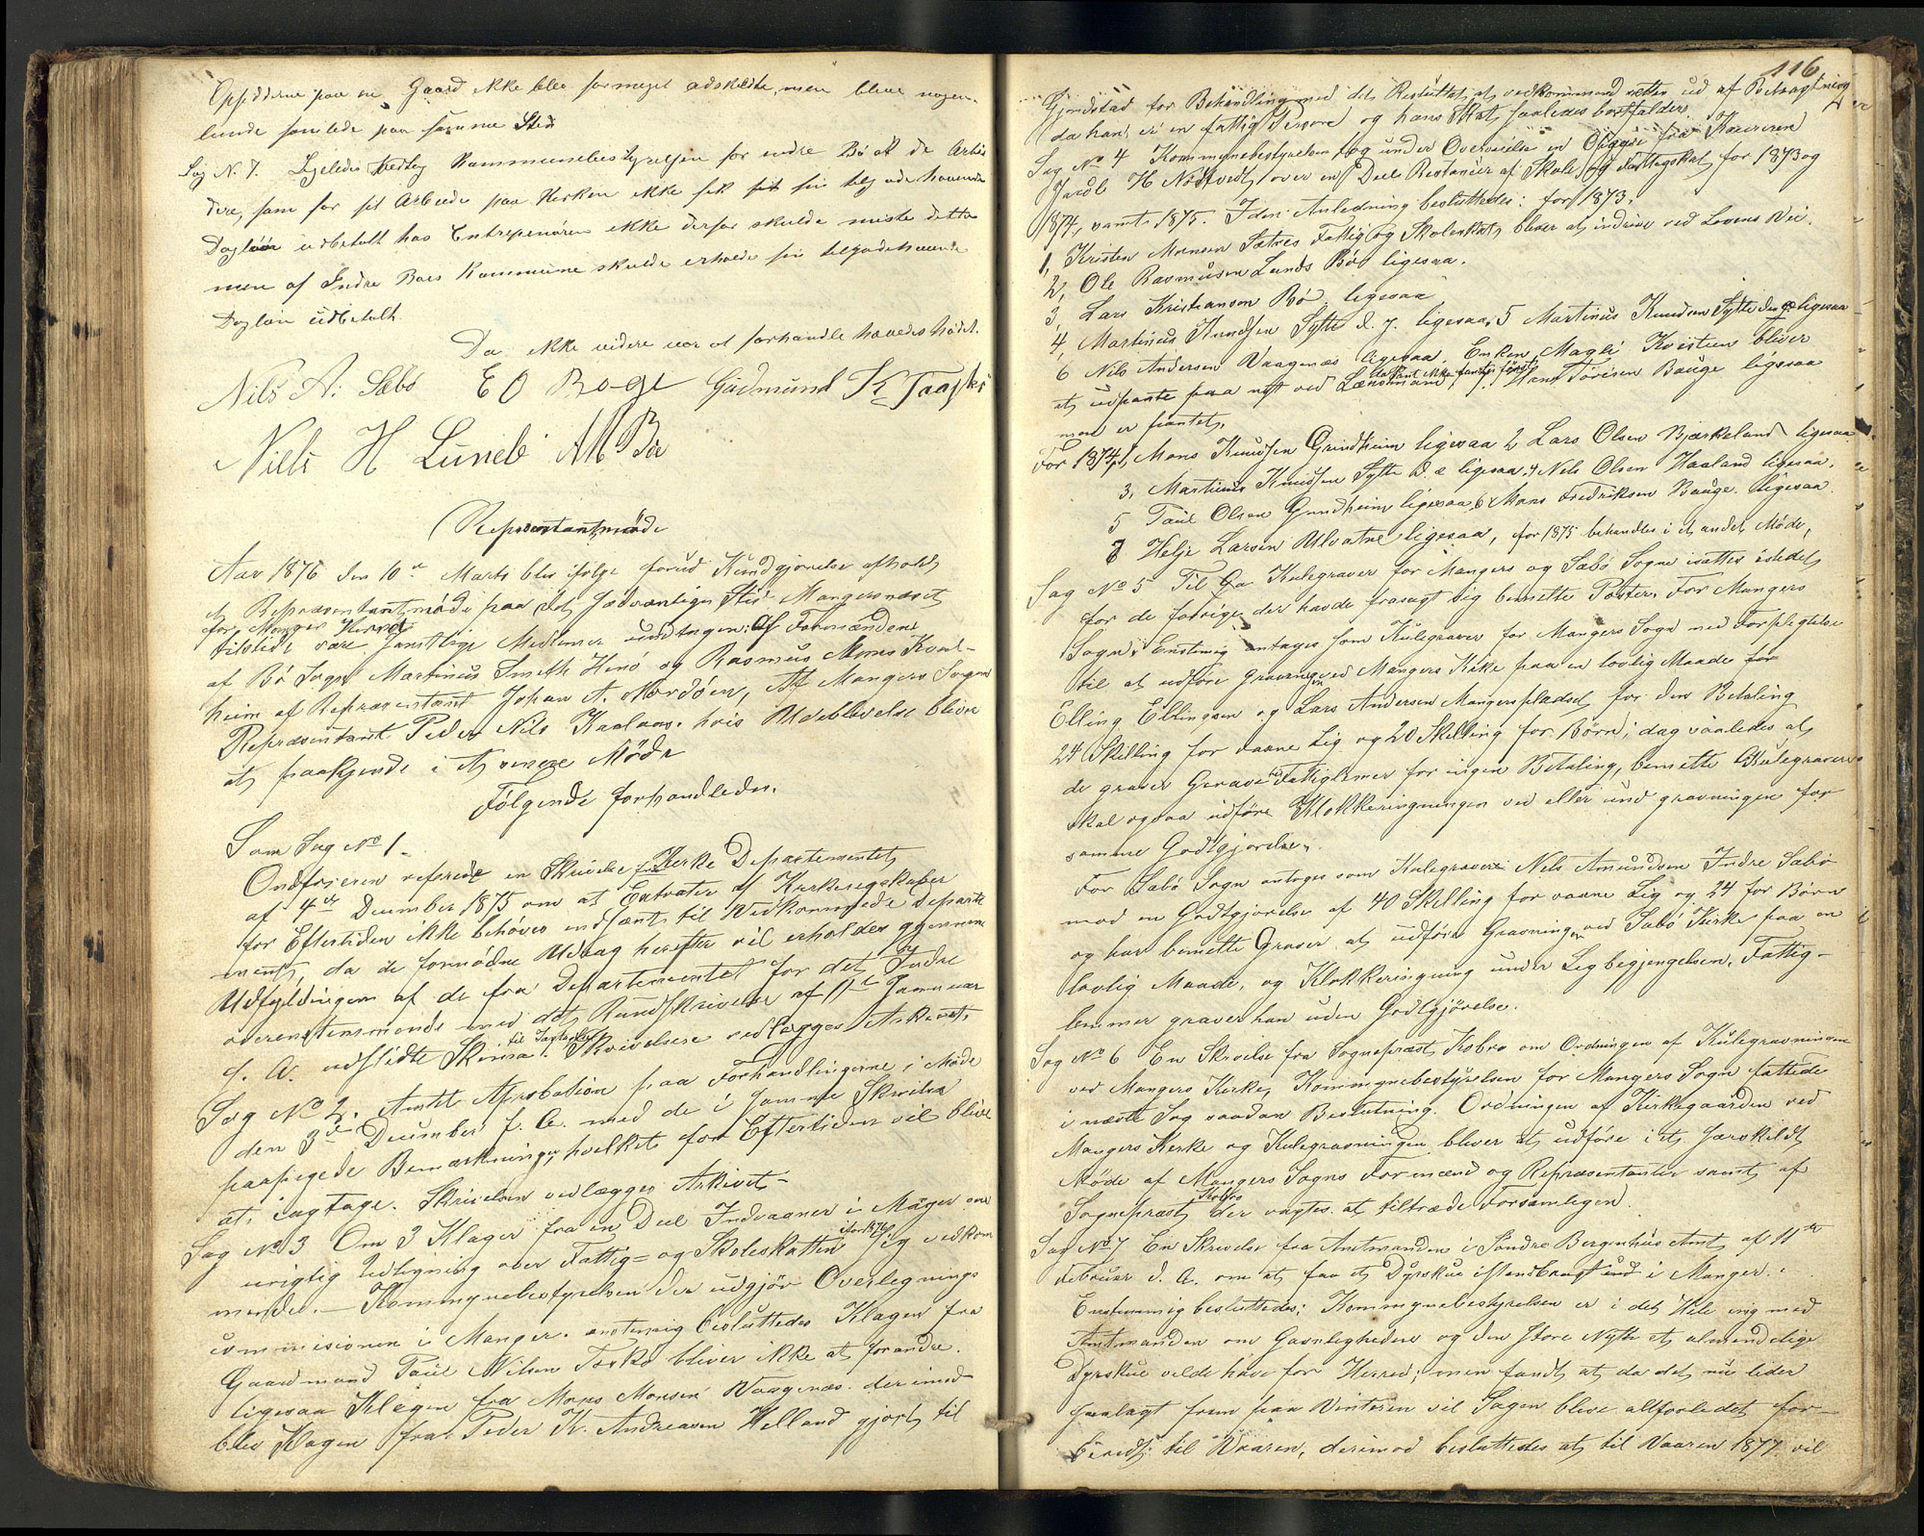 Opsidderne paa en Gaard ikke blev formeget adskildte, men bleve nogen-
lunde samlede paa samme Sted
Sag N. 7. Ligeledes vedtog Kommunebestyrelsen for indre Bø at de Arbei
dere, som for sit Arbeide paa Kirken ikke fik sit tilgodehavende
Dagløn udbetalt hos Entrepenøren ikke derfor skulde miste dette
men af Indre Boes Kommune skulde erholde sin tilgodehavende
Dagløn udbetalt.
Da ikke videre var at forhandle hævedes Mødet.
Nils A: Sæbø E O Boge Gudmund K Taaska
Niels H Lunde AMBø
Representantmøde
Aar 1876 den 10de Marts blev ifølge forud Kundgjørelse afholdt
et Repræsentantmøde paa det sædvanlige Sted Mangersnæset
for Manger Herred
tilstede vare samtlige Medlemer undtagen: Af Formændene
af Bø Sogn Martinus Smith Hernø og Rasmus Mons Kval-
heim af Repræsentant Johan A. Nordøen, Af Mangers Sogn
Repræsentant Peder Nils Kaalaas. hvis Udeblivelse bliver
at paakjende i et senere Møde
Følgende forhandledes.
Som Sag No 1 -
Ordføreren referede en Skrivelse fra Kirke Departementet
af 4de December 1875 om at Extrater af Kirkeregskaber
for Eftertiden ikke behøves indsænt til Vedkommende Departe
ment, da de fornødne Udbag herefter vil erholdes gjennem
Udfyldningen af de fra Departementet for det Indre
overenstemmende med det Rundskrivelse af 11te Januar
d. A. udstedte Skema. Skrivelsen vedlægges Arkivet.
til Iagttagelse
Sag No 2. Amtets Aprobation paa Forhandlingerne i Møde
den 3de December f. A. med de i samme Skrivelse
paapegede Bemærkninger, hvilket for Eftertiden vil blive
at iagtage. Skrivelsen vedlægges Arkivet -
Sag No 3 Om 3 Klager fra en Deel Indvaaner i Manger om
urigtig Udligning over Fattig- og Skoleskatten for 1876 sig vedkom
mende. - Kommynebestyrelsen der udgjør Overlegnings
commisionen i Manger. enstemig besluttedes Klagen fra
Gaardmand Paul Nilsen Toska bliver ikke at forandre.
ligesaa Klagen fra Mons Monsen Vaagenæs. derimod
blev Klagen fra Peder K. Andreasen Helland gjort til
116
Gjendstad for Behandling med det Resultat at vedkommend settes ud af Betragtning
da han er en fattig Person og hans Skat saaledes bortfalder.
Sag No 4 Kommynebestyrelsen tog under Overveielse en Opgave fra Kæreren
Jakob H Nødtvedt over en Deel Restancer af Skole og Fattigskat for 1873 og
1874, samt 1875. I den Anledning besluttedes: for 1873.
1, Kristen Monsen Sætres Fattig og Skoleskat bliver at indrive ved Lovens Vei.
2, Ole Rasmusen Lunds Bø ligesaa.
3, Lars Kristianson Bø. ligesaa
4, Martinus Knudsen Sylte d. y. ligesaa, 5 Martinus Knudsen Sylte den æ ligesaa
6 Nils Andersen Vaagenæs ligesaa. Enken Magli Kvistein bliver
at udpante paa nyt ved Lænsmand, 7. Hans Torisen Bauge ligesaa
da Pant ikke fantes først
men er pantet,
For 1874, 1, Mons Knudsen Grindheim ligesaa 2 Lars Olsen Bjærkeland ligesaa
3, Martinus Knudsen Sylte d. æ ligesaa, 4 Nils Olsen Haaland ligesaa.
5 Paul Olsen Grindheim ligesaa, 6 Mons Fredriksen Bauge. ligesaa.
7 Helje Larsen Ulvatne ligesaa, for 1875 behandles i et andet Møde,
Sag No 5 Til Kulegraver for Mangers og Sæbø Sogne isattes istedet
for de forrige der havde frasagt sig bemelte Poster. For Mangers
Sogn: Enstemig antages som Kulegraver for Mangers Sogn med Forpligtelse
til at udføre Gravningen ved Mangers Kirke paa en lovlig Maade for
Elling Ellingsen og Lars Andersen Mangerspladset for den Betaling
24 Skilling for voxne Lig og 20 Skilling for Børn, dog saaledes at
de graver Grave til Fattiglemer for ingen Betaling, bemelte Kulegravere
skal ogsaa udføre Klokkeringningen ved eller und gravningen for
samme Godtgjørelse.
For Sæbø Sogn antoges som Kulegraver Nils Amundsen Indre Sæbø
mod en Godtgjørelse af 40 Skilling for voxne Lig og 24 for Børn
og har bemelte Graver at udføre Gravningen ved Sæbø Kirke paa en
lovlig Maade, og Klokkeringning under Ligbegjengelsen. Fattig-
lemmer graver han uden Godtgjørelse.
Sag No 6 En Skrivelse fra Sognepræst Kobro om Ordningen af Kulegravningen
ved Mangers Kirke, Kommynebestyrelsen for Mangers Sogn fattede
i næste Sag saadan Beslutning. Ordningen af Kirkegaarden ved
Mangers Kirke og Kulegravningen bliver at udføre i et særskildt
Møde af Mangers Sogns Formænd og Repræsentanter samt af
Sognepræst Kobro der vagtes at tiltræde Forsamlegen.
Sag No 7 En Skrivelse fra Amtmanden i Søndre Bergenhus Amt af 11te
Februar d. A. om at faa et Dyrskue istandbragt i Manger.
Enstemmig besluttedes: Kommynebestyrelsen er i det Hele enig med
Amtmanden om Gavnligheden og den store Nytte et almindelige
Dyrskue vilde have for Herred; men fandt at da det nu lider
saalagt frem paa Vinteren vil Sagen blive altforledet for-
beredt til Vaaren, derimod besluttedes at til Vaaren 1877 vil